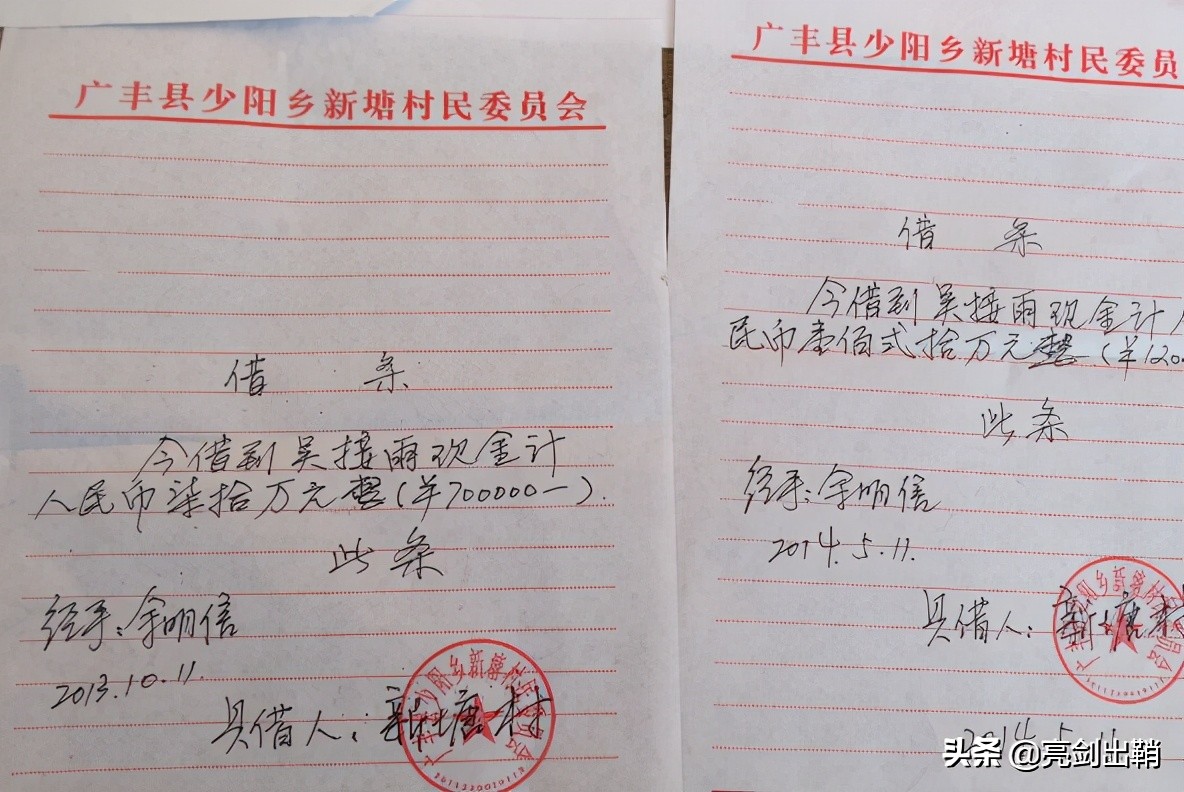 广丰县少阳乡新塘村民委员会
借 条
今借到吴接雨现金计
人民币柒拾万元整(¥700000一).
此条
经手:余明信
2013.10.11.
具借人:新塘村
广丰县少阳乡新塘村民委员
借 条
今借到吴接雨现金计人
民币壹佰弍拾万元整(¥120
此条
经手:余明信
2014.5.11.
具借人:新塘村
2014.5.11
头条 @亮剑出鞘